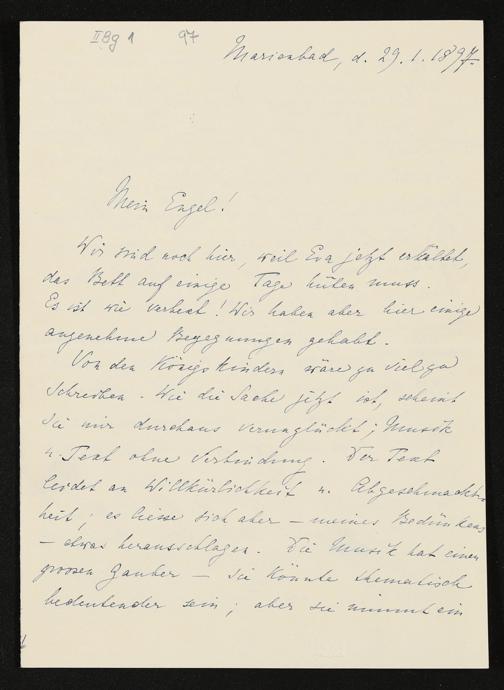 II Bg 1 97
Marienbad, d. 29.1.1897.
Mein Engel!
Wir sind noch hier, weil Eva jetzt erkältet,
das Bett auf einige Tage hüten muss.
Es ist wie verhext! Wir haben aber hier einige
angenehme Begegnungen gehabt.
Von den Königskindern wäre zu viel zu
schreiben. Wie die Sache jetzt ist, scheint
sie mir durchaus verunglückt; Musik
u. Text ohne Verbindung. Der Text
leidet an Willkürlichkeit u. Abgeschmackt-
heit; es liesse sich aber – meines Bedünkens
– etwas herausschlagen. Die Musik hat einen
grossen Zauber – sie könnte thematisch
bedeutender sein; aber sie nimmt ein